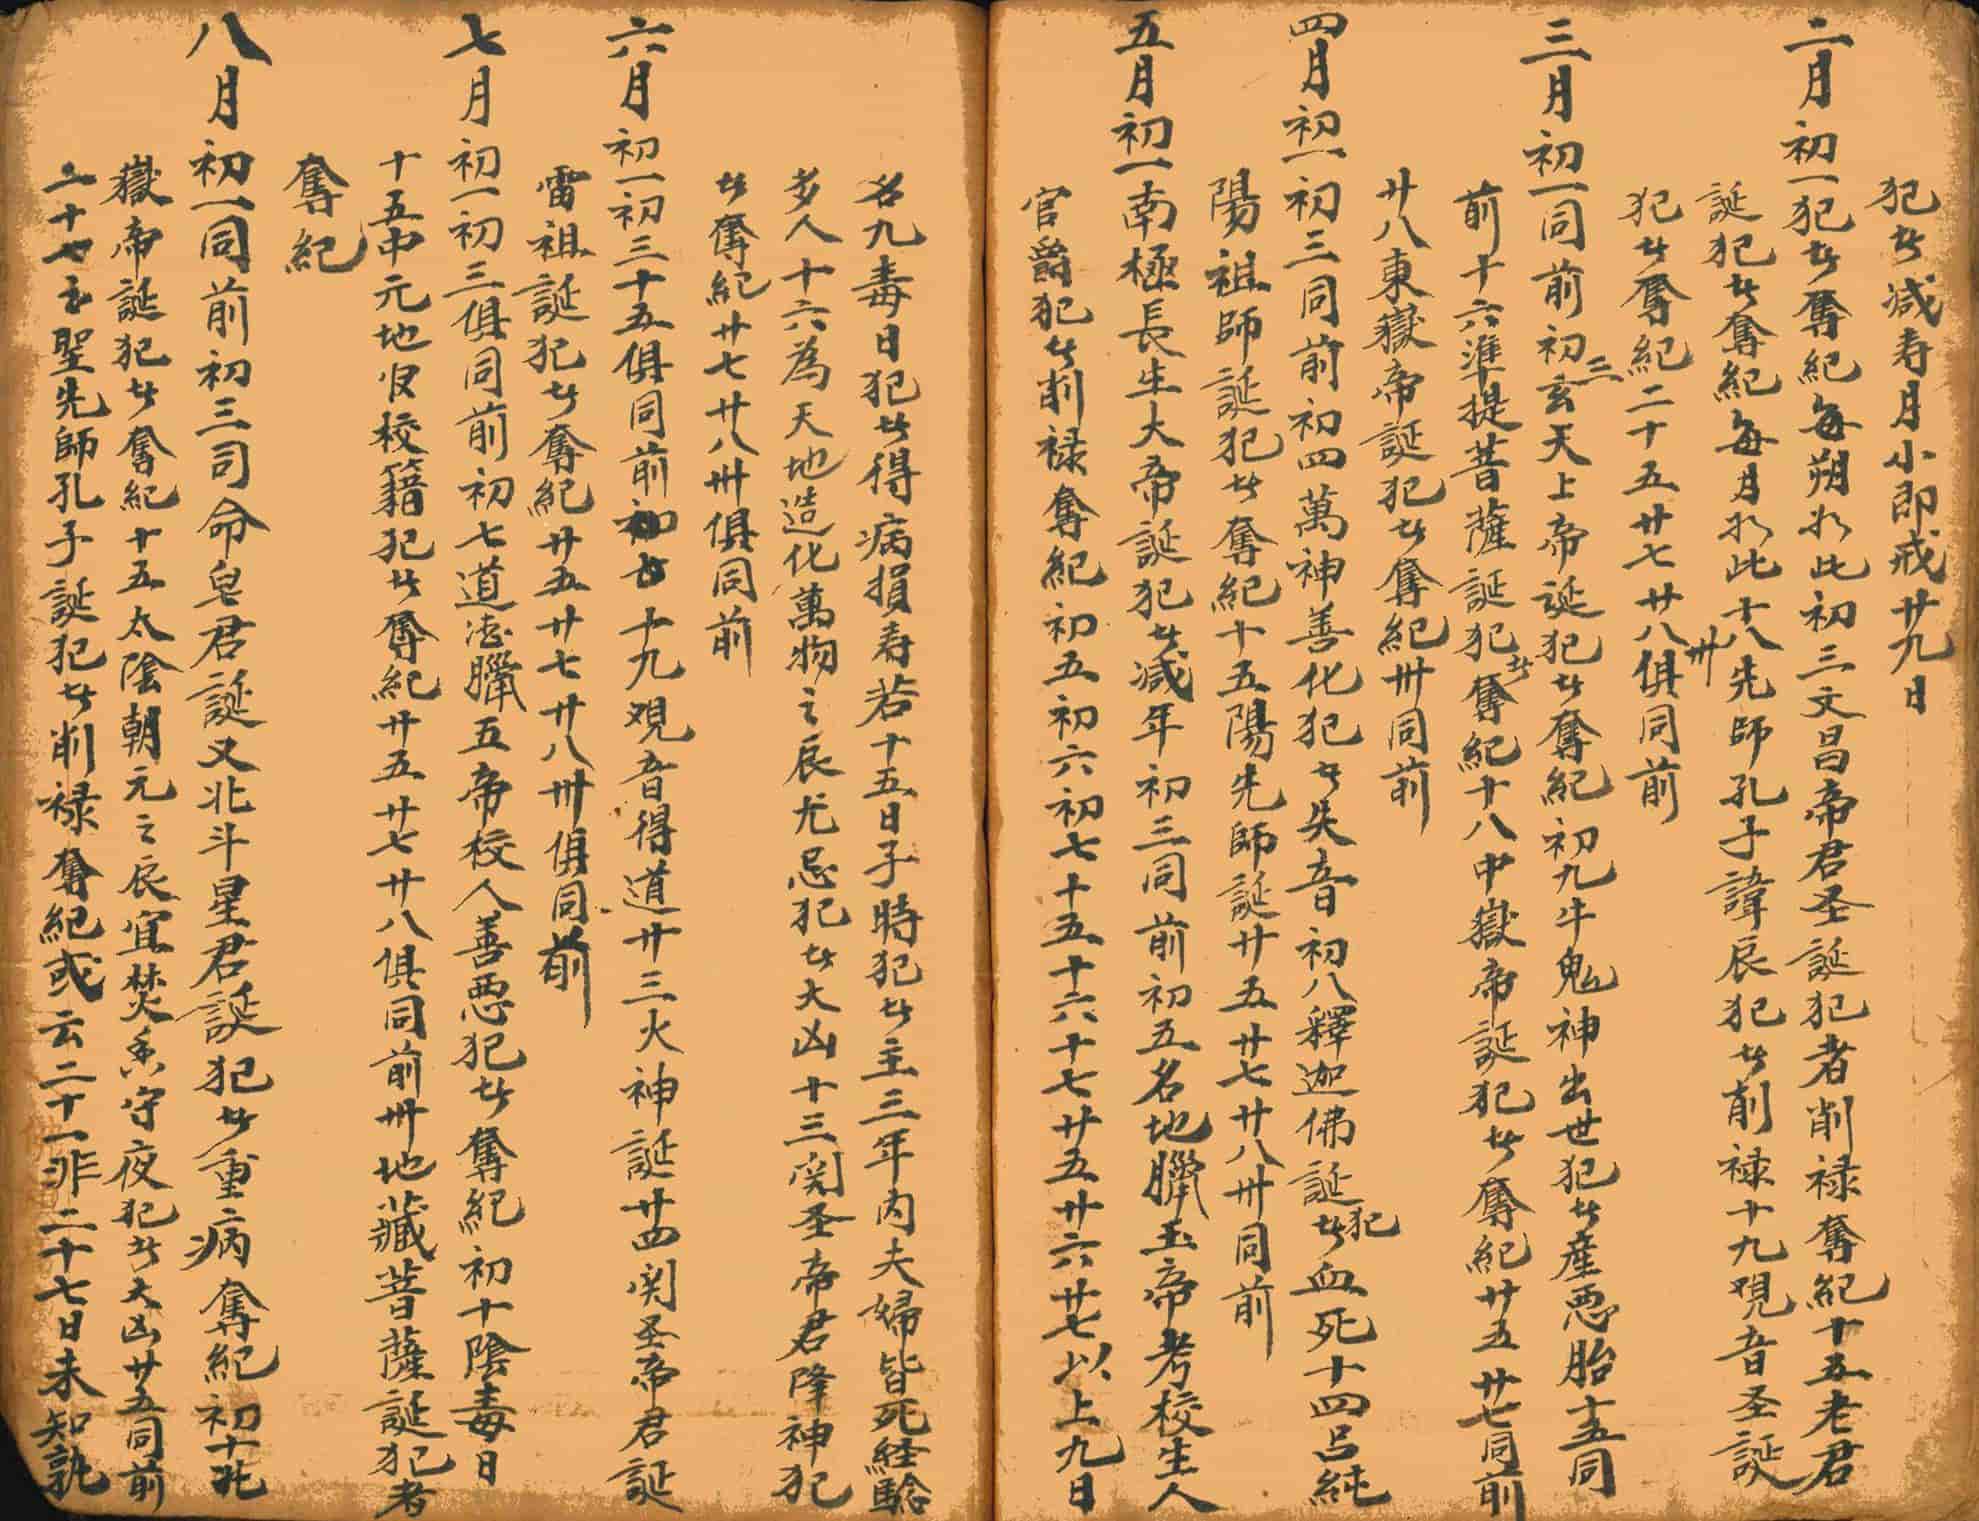 犯者减寿月小即戒廿九日
二月初一犯者奪紀每朔如此初三文昌帝君圣誕犯者削禄奪紀十五老君
誕犯者奪紀每月如此十八先師孔子諱辰犯者削禄十九观音圣誕
犯者奪紀二十五廿七廿八卅俱同前
三月初一同前初三玄天上帝誕犯者奪紀初九牛鬼神出世犯者產恶胎十五同
前十六準提菩薩誕犯者奪紀十八中嶽帝誕犯者奪紀廿五廿七同前
廿八東嶽帝誕犯者奪紀卅同前
四月初一初三同前初四萬神善化犯者失音初八釋迦佛誕犯者血死十四吕純
陽祖師誕犯者奪紀十五陽先師誕廿五廿七廿八卅同前
五月初一南極長生大帝誕犯者减年初三同前初五名地臘玉帝考校生人
官爵犯者削禄奪紀初五初六初七十五十六十七廿五廿六廿七以上九日
名九毒日犯者得病損寿若十五日子時犯者主三年内夫婦皆死経驗
多人十六為天地造化萬物之辰尤忌犯者大凶十三関圣帝君降神犯
者奪紀廿七廿八卅俱同前
六月初一初三十五俱同前初七十九观音得道廿三火神誕廿四関圣帝君誕
雷祖誕犯者奪紀廿五廿七廿八卅俱同前
七月初一初三俱同前初七道德臘五帝校人善恶犯者奪紀初十陰毒日
十五中元地官校籍犯者奪紀廿五廿七廿八俱同前卅地藏菩薩誕犯者
奪紀
八月初一同前初三司命皂君誕又北斗星君誕犯者重病奪紀初十北
嶽帝誕犯者奪紀十五太陰朝元之辰宜焚香守夜犯者大凶廿五同前
二十七至聖先師孔子誕犯者削禄奪紀或云二十一非二十七日未知孰